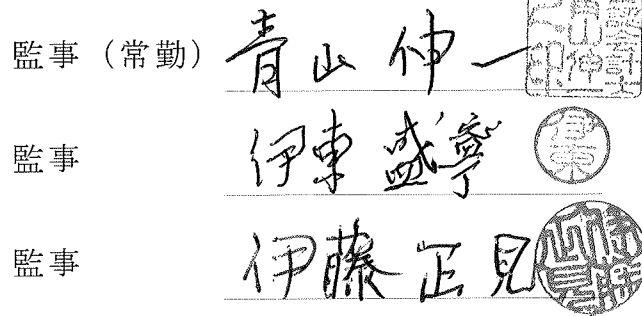 監事（常勤） 青山 伸一
監事 伊東 盛寧
監事 伊藤 正見
伊東